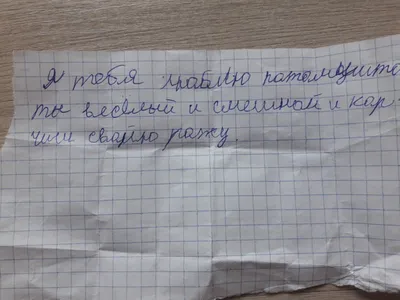 Я тебя люблю патамушто
ты весёлый и смешной и кар-
чиш свайю ражу.